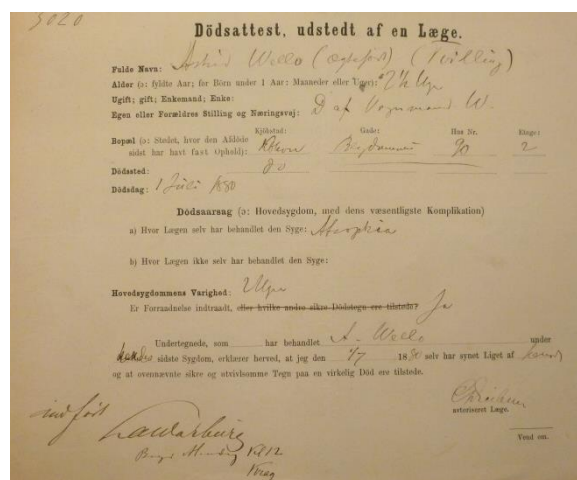 5020
Dödsattest, udstedt af en Læge.
Fulde Navn: Astrid Wello (ægtefødt) (Tvilling)
Alder (ɔ: fyldte Aar; for Börn under 1 Aar: Maaneder eller Uger): 2½ Uge
Ugift; gift; Enkemand; Enke:
Egen eller Forældres Stilling og Næringsvej: D af Vognmand W.
Kjöbstad: Gade: Hus Nr. Etage:
Bopæl (ɔ: Stedet, hvor den Afdöde sidst har havt fast Ophold): Kbhavn 90 2
Dödssted: do
Dödsdag: 1 Juli 1880
Dödsaarsag (ɔ: Hovedsygdom, med dens væsentligste Komplikation)
a) Hvor Lægen selv har behandlet den Syge: Atrophia
b) Hvor Lægen ikke selv har behandlet den Syge:
Hovedsygdommens Varighed: Uger
Er Forraadnelse indtraadt, eller hvilke andre sikre Dödstegn ere tilstede? Ja
Undertegnede, som har behandlet A. Wello under
hendes sidste Sygdom, erklærer herved, at jeg den 4/7 1880 selv har synet Liget af
og at ovennævnte sikre og utvivlsomme Tegn paa en virkelig Död ere tilstede.
autoriseret Læge.
indført
Vend om.